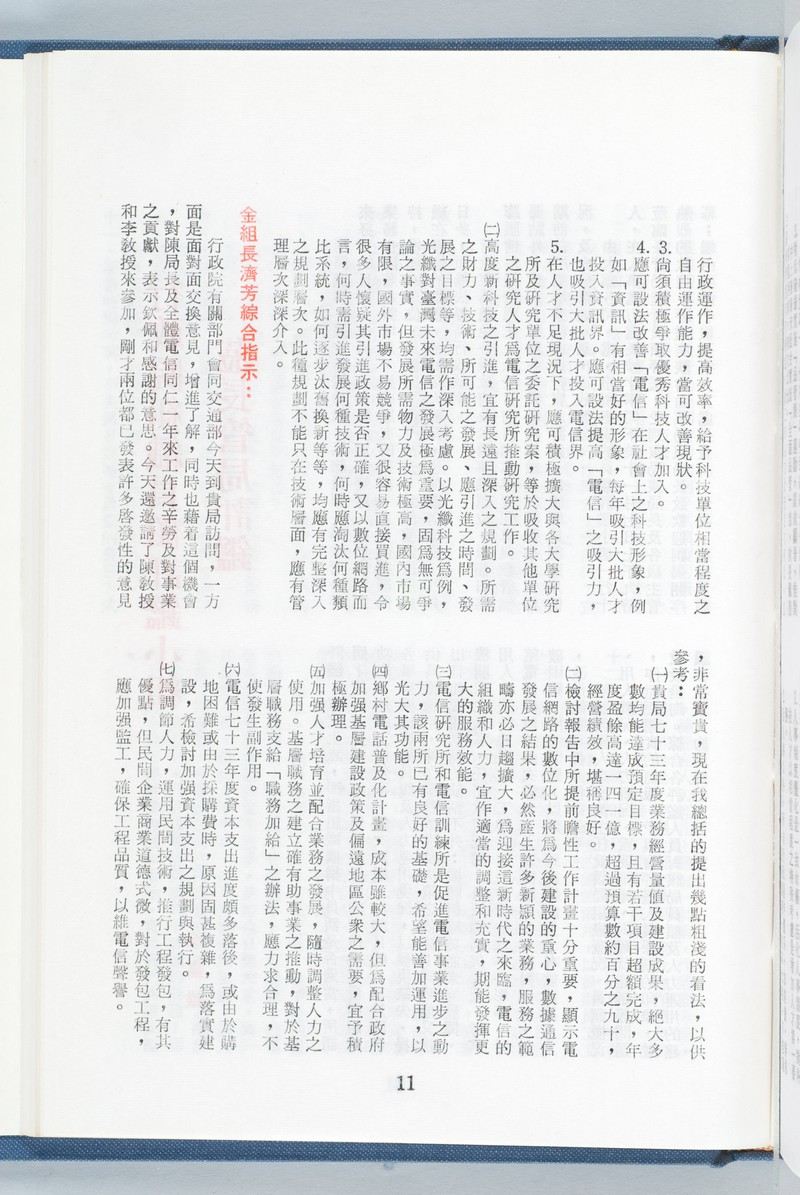 行政運作，提高效率，給予科技單位相當程度之
自由運作能力，當可改善現狀。
3.尚須積極爭取優秀科技人才加入。
4.應可設法改善「電信」在社會上之科技形象，例
如「資訊」有相當好的形象，每年吸引大批人才
投入資訊界。應可設法提高「電信」之吸引力，
也吸引大批人才投入電信界。
5.在人才不足現況下，應可積極擴大與各大學研究
所及研究單位之委託研究案，等於吸收其他單位
之研究人才為電信研究所推動研究工作。
㈡高度新科技之引進，宜有長遠且深入之規劃。所需
之財力、技術、所可能之發展、應引進之時間、發
展之目標等，均需作深入考慮。以光纖科技為例，
光纖對臺灣未來電信之發展極為重要，固為無可爭
論之事實，但發展所需物力及技術極高，國內市場
有限，國外市場不易競爭，又很容易直接買進，令
很多人懷疑其引進政策是否正確，又以數位網路而
言，何時需引進發展何種技術，何時應淘汰何種類
比系統，如何逐步汰舊換新等等，均應有完整深入
之規劃層次。此種規劃不能只在技術層面，應有管
理層次深深介入。
金組長濟芳綜合指示：
行政院有關部門會同交通部今天到貴局訪問，一方
面是面對面交換意見，增進了解，同時也藉着這個機會
，對陳局長及全體電信同仁一年來工作之辛勞及對事業
之貢獻，表示欽佩和感謝的意思。今天還邀請了陳教授
和李教授來參加，剛才兩位都已發表許多啓發性的意見
，非常寶貴，現在我總括的提出幾點粗淺的看法，以供
參考：
㈠貴局七十三年度業務經營量值及建設成果，絕大多
數均能達成預定目標，且有若干項目超額完成，年
度盈餘高達一四一億，超過預算數約百分之九十，
經營績效，堪稱良好。
㈡檢討報告中所提前瞻性工作計畫十分重要，顯示電
信網路的數位化，將為今後建設的重心，數據通信
發展之結果，必然產生許多新穎的業務，服務之範
疇亦必日趨擴大，為迎接這新時代之來臨，電信的
組織和人力，宜作適當的調整和充實，期能發揮更
大的服務效能。
㈢電信研究所和電信訓練所是促進電信事業進步之動
力，該兩所已有良好的基礎，希望能善加運用，以
光大其功能。
㈣鄉村電話普及化計畫，成本雖較大，但為配合政府
加强基層建設政策及偏遠地區公衆之需要，宜予積
極辦理。
㈤加强人才培育並配合業務之發展，隨時調整人力之
使用。基層職務之建立確有助事業之推動，對於基
層職務支給「職務加給」之辦法，應力求合理，不
使發生副作用。
㈥電信七十三年度資本支出進度頗多落後，或由於購
地困難或由於採購費時，原因固甚複雜，為落實建
設，希檢討加强資本支出之規劃與執行。
㈦為調節人力，運用民間技術，推行工程發包，有其
優點，但民間企業商業道德式微，對於發包工程，
應加强監工，確保工程品質，以維電信聲譽。
11